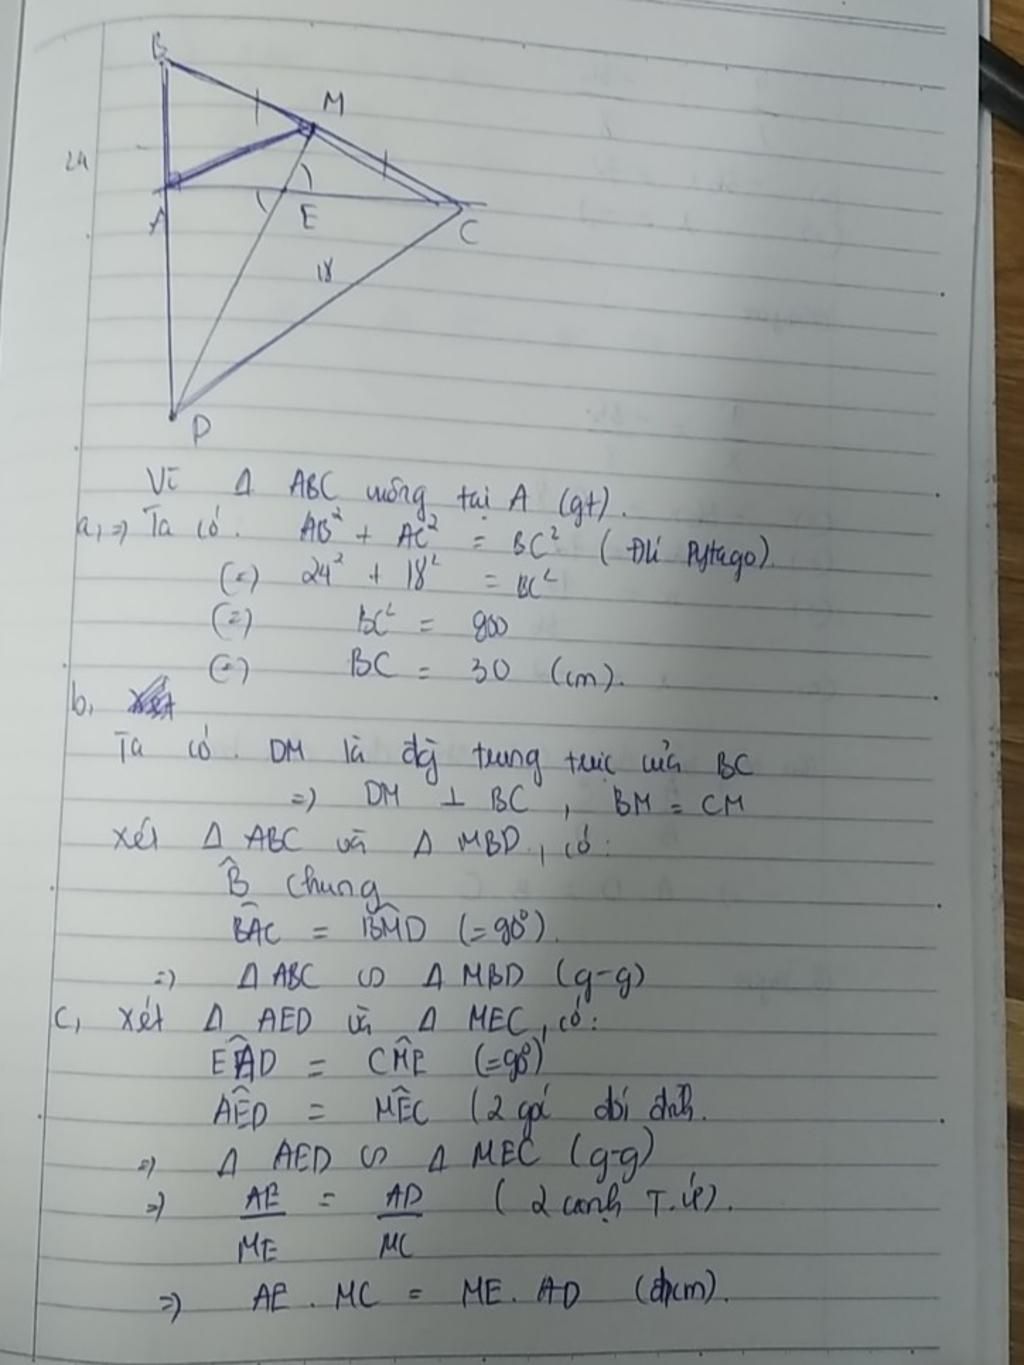 B
M
24
A
E
C
18
D
Vì Δ ABC vuông tại A (gt).
a, => Ta có: AB² + AC² = BC² (Đlí Pytago).
(=) 24² + 18² = BC²
(=) BC² = 900
(=) BC = 30 (cm).
b,
Ta có: DM là đg trung trực của BC
=> DM ⊥ BC, BM = CM
Xét Δ ABC và Δ MBD, có:
B̂ chung
BÂC = BM̂D (=90°).
=> Δ ABC ∽ Δ MBD (g-g)
c, Xét Δ AED và Δ MEC, có:
EÂD = CM̂E (=90°)
AÊD = MÊC (2 góc đối đỉnh.
=> Δ AED ∽ Δ MEC (g-g)
=> AE/ME = AD/MC (2 cạnh T.Ư).
=> AE . MC = ME . AD (đpcm).